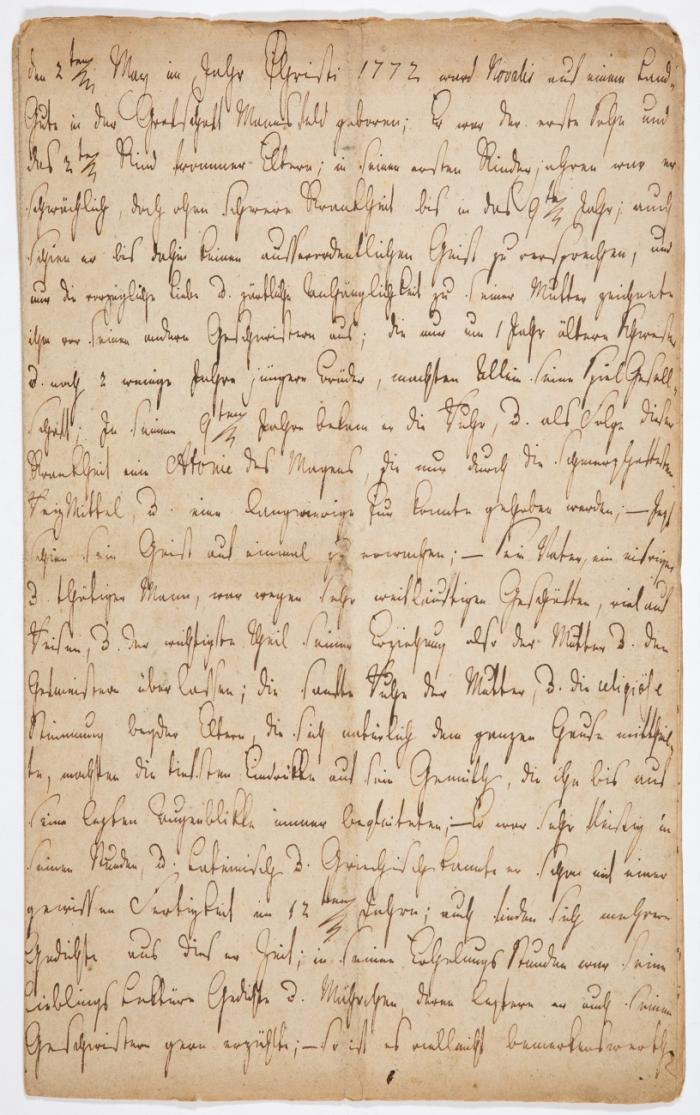 den 2ten May im Jahr Christi 1772 ward Novalis auf einem Land-
Gute in der Grafschaft Mannsfeld geboren; Er war der erste Sohn und
das 2te Kind frommer Eltern; in seinen ersten Kinderjahren war er
schwächlich, doch ohne schwere Krankheit bis in das 9te Jahr; auch
schien er bis dahin keinen ausserordentlichen Geist zu versprechen, und
nur die vorzügliche Liebe u. zärtliche Anhänglichkeit zu seiner Mutter zeichnete
ihn vor seinen andern Geschwistern aus; die nur um 1 Jahr ältere Schwester
u. noch 2 wenige Jahre jüngere Brüder, machten allein seine Spiel Gesell-
schaft; In seinem 9ten Jahre bekam er die Ruhr, u. als Folge dieser
Krankheit eine Atonie des Magens, die nur durch die schmerzhaftesten
Reiz Mittel, u. eine langwierige Cur konnte gehoben werden; — Jezt
schien sein Geist auf einmal zu erwachen; — Sein Vater, ein eifriger
u. thätiger Mann, war wegen sehr weitläuftigen Geschäften, viel auf
Reisen, u. der wichtigste Theil seiner Erziehung also der Mutter u. den
Hofmeistern überlassen; die sanfte Ruhe der Mutter, u. die religiöse
Stimmung beyder Eltern, die sich natürlich dem ganzen Hause mittheil-
te, machten die tiefsten Eindrükke auf sein Gemüth, die ihn bis auf
seine lezten Augenblikke immer begleiteten; — Er war sehr fleissig in
seinen Stunden, u. Lateinisch u. Griechisch kannte er schon mit einer
gewissen Fertigkeit im 12ten Jahre; auch finden sich mehrere
Gedichte aus dieser Zeit; in seinen Erholungs Stunden war seine
Lieblings Lektüre Gedichte u. Mährchen, deren leztere er auch seinen
Geschwistern gern erzählte; — so ist es vielleicht bemerkenswerth